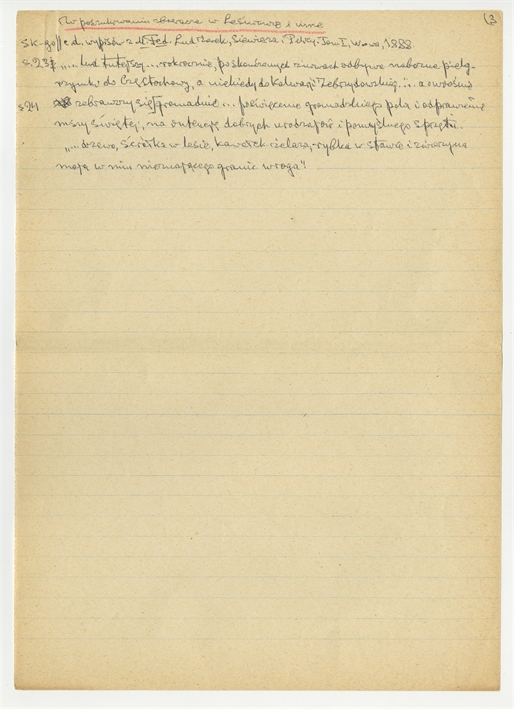 W poszukiwaniu zbieracza w Leśniowie i inne
(3
c.d. wypisów z Fed. Lud Żarek, Siewierza i Pilicy. Tom I, W-wa, 1888
s. 231 „... lud tutejszy... rokrocznie, po skończonych żniwach odbywa nabożne pielg-
rzymki do Częstochowy, a niekiedy do Kalwarji Zebrzydowskiej... a w wiosnę
s. 24 zebrawszy się gromadnie... poświęcenie gromadzkiego pola i odprawienie
mszy świętej, na intencję dobrych urodzajów i pomyślnego sprzętu.
„... drzewo, ściółka w lesie, kawałek żelaza, rybka w stawie i zwierzyna
mają w nim nieznającego granic wroga"!